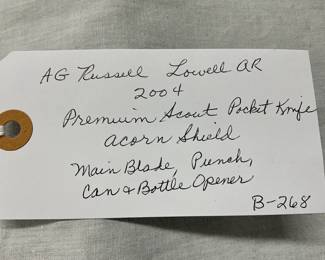 AG Russell Lowell AR
2004
Premium Scout Pocket Knife
Acorn Shield
Main Blade, Punch,
Can & Bottle Opener
B-268